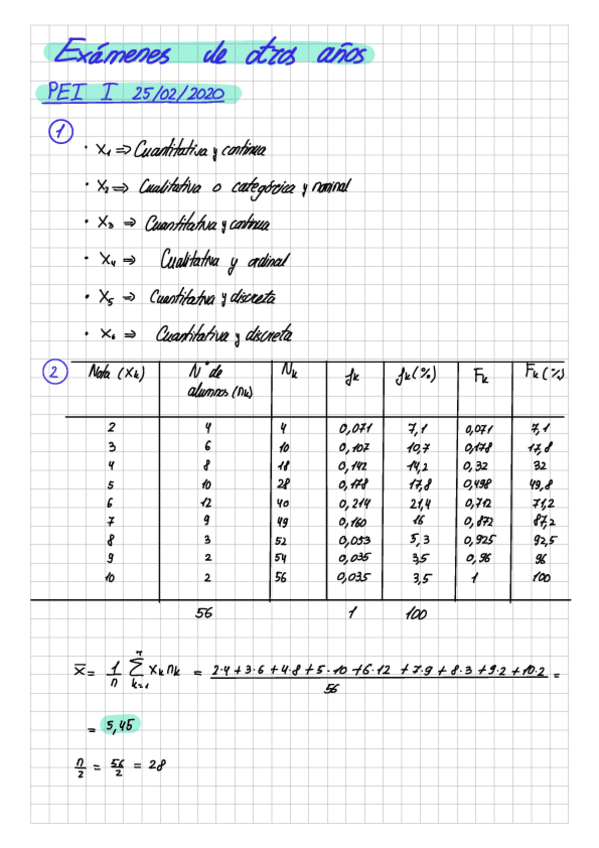 Exámenes de otros años
PEI I 25/02/2020
1
· X1 ⇒ Cuantitativa y continua
· X2 ⇒ Cualitativa o categórica y nominal
· X3 ⇒ Cuantitativa y continua
· X4 ⇒ Cualitativa y ordinal
· X5 ⇒ Cuantitativa y discreta
· X6 ⇒ Cuantitativa y discreta
2 Nota (Xk) Nº de alumnos (nk) Nk fk fk(%) Fk Fk(%)
2 4 4 0,071 7,1 0,071 7,1
3 6 10 0,107 10,7 0,178 17,8
4 8 18 0,142 14,2 0,32 32
5 10 28 0,178 17,8 0,498 49,8
6 12 40 0,214 21,4 0,712 71,2
7 9 49 0,160 16 0,872 87,2
8 3 52 0,053 5,3 0,925 92,5
9 2 54 0,035 3,5 0,96 96
10 2 56 0,035 3,5 1 100
56 1 100
x̄ = 1/n Σ k=1 n xk nk = 2·4+3·6+4·8+5·10+6·12+7·9+8·3+9·2+10·2 / 56 =
= 5,45
n/2 = 56/2 = 28